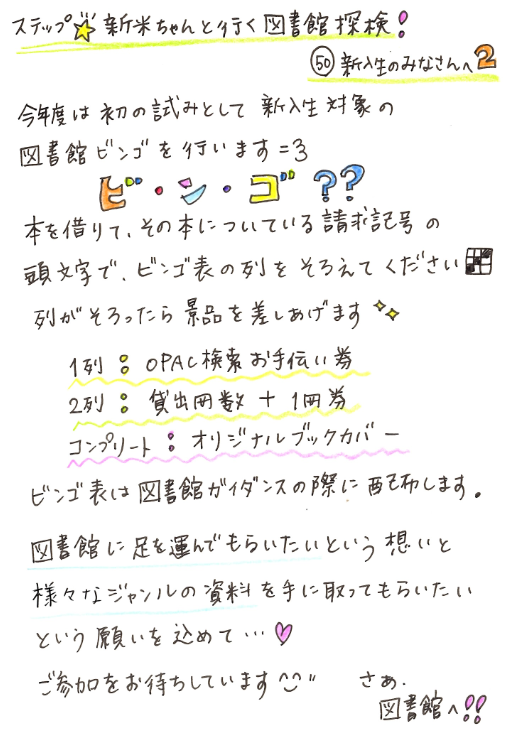 ステップ☆新米ちゃんと行く図書館探検!
㊿ 新入生のみなさんへ2
今年度は初の試みとして新入生対象の
図書館ビンゴを行います=3
ビ・ン・ゴ??
本を借りて、その本についている請求記号の
頭文字で、ビンゴ表の列をそろえてください
列がそろったら景品を差しあげます
1列:OPAC検索お手伝い券
2列:貸出冊数+1冊券
コンプリート:オリジナルブックカバー
ビンゴ表は図書館ガイダンスの際に配布します。
図書館に足を運んでもらいたいという想いと
様々なジャンルの資料を手に取ってもらいたい
という願いを込めて…♥
ご参加をお待ちしています さぁ、
図書館へ!!